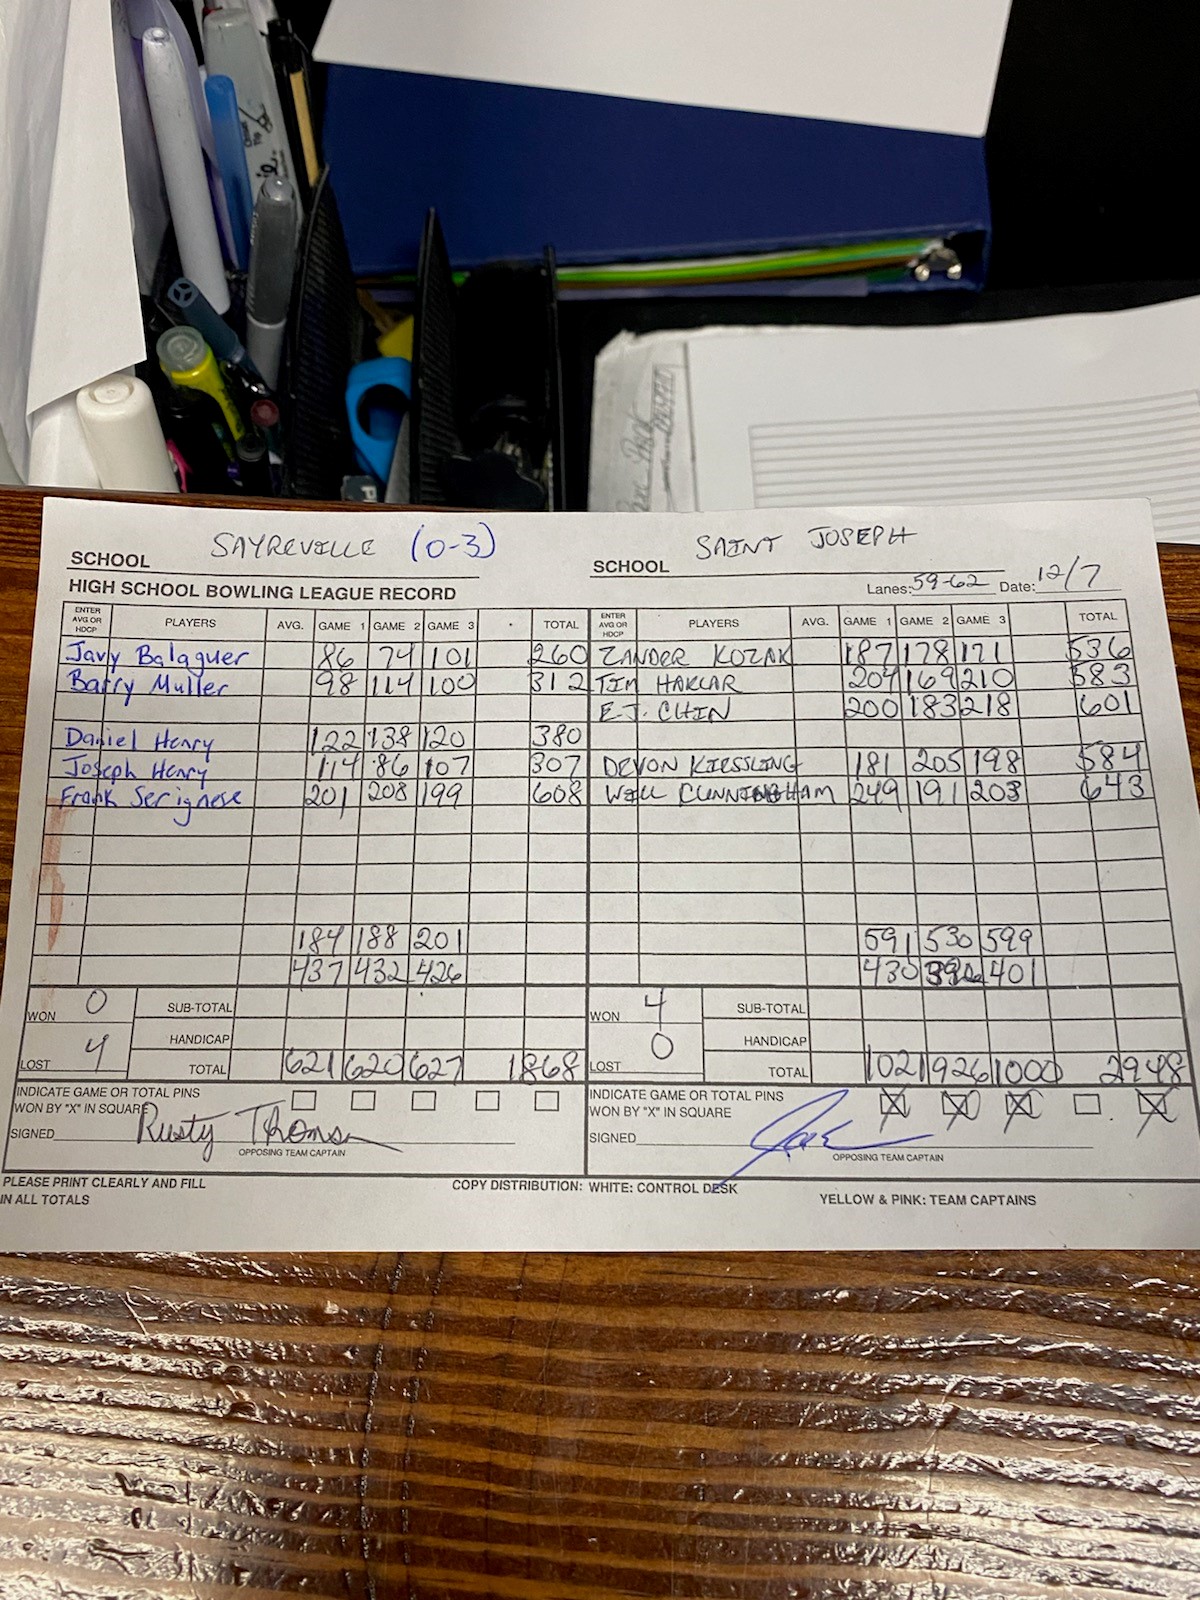 SCHOOL SAYREVILLE (0-3)
SCHOOL SAINT JOSEPH
HIGH SCHOOL BOWLING LEAGUE RECORD
Lanes: 59-62 Date: 12/7
ENTER AVG OR HDCP PLAYERS AVG. GAME 1 GAME 2 GAME 3 TOTAL ENTER AVG OR HDCP PLAYERS AVG. GAME 1 GAME 2 GAME 3 TOTAL
Javy Balaguer 86 74 101 260 ZANDER KOZAK 187 178 171 536
Barry Muller 98 114 100 312 TIM HAKLAR 204 169 210 583
E.J. CHIN 200 183 218 601
Daniel Henry 122 138 120 380
Joseph Henry 114 86 107 307 DEVON KIESSLING 181 205 198 584
Frank Serignese 201 208 199 608 WILL CUNNINGHAM 249 191 203 643
184 188 201 591 530 599
437 432 426 430 396 401
WON 0 SUB-TOTAL WON 4 SUB-TOTAL
HANDICAP HANDICAP
LOST 4 TOTAL 621 620 627 1868 LOST 0 TOTAL 1021 926 1000 2948
INDICATE GAME OR TOTAL PINS
WON BY "X" IN SQUARE
INDICATE GAME OR TOTAL PINS
WON BY "X" IN SQUARE X X X X
SIGNED Rusty Thomsn
OPPOSING TEAM CAPTAIN
SIGNED
OPPOSING TEAM CAPTAIN
PLEASE PRINT CLEARLY AND FILL
IN ALL TOTALS
COPY DISTRIBUTION: WHITE: CONTROL DESK
YELLOW & PINK: TEAM CAPTAINS